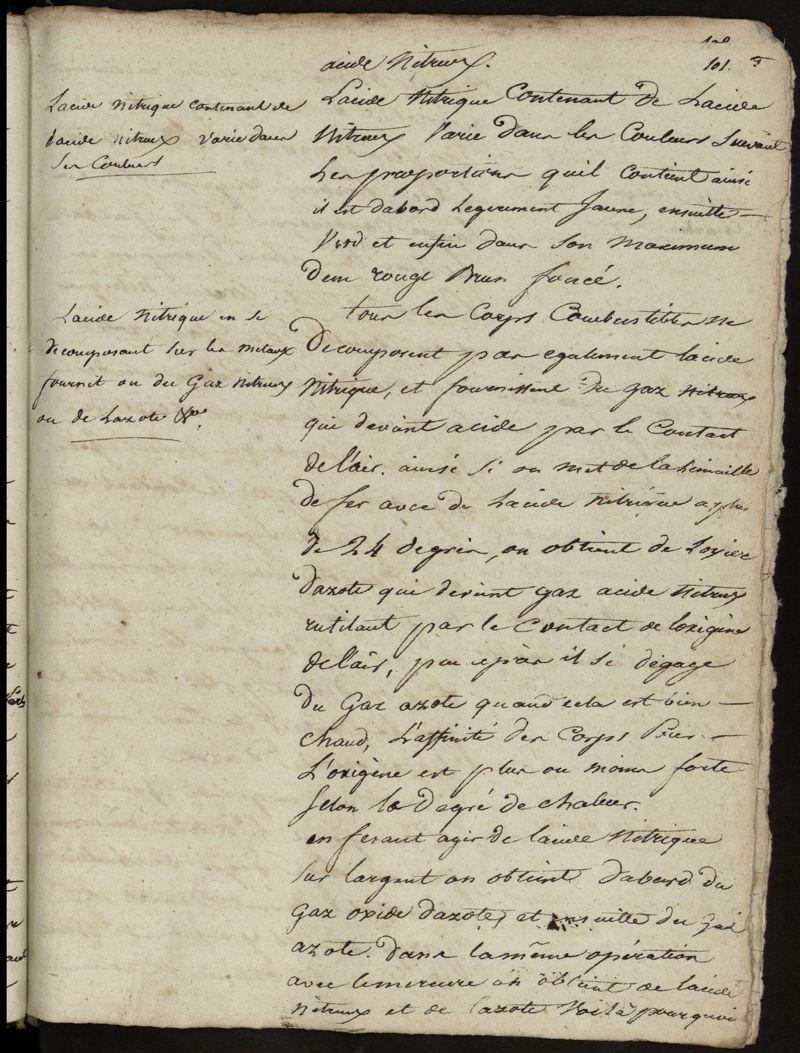 101.
acide Nitreux.
L'acide Nitrique Contenant de L'acide
Nitreux Varie dans les Couleurs Suivant
Les proportions quil Contient ainsi
il est dabord Legerement Jaune, ensuitte
Verd et enfin dans Son Maximum
dun rouge Brun foncé.
tous les Corps Combustibles ne
Decomposent pas egalement lacide
Nitrique, et fournissent Du gaz nitreux
qui devient acide par le Contact
de l'air. ainsi Si on met de la Limaille
de fer avec de Lacide Nitrique a plus
de 24 degrés, on obtient de Loxide
dazote qui devient gaz acide Nitreux
rutilant par le Contact de loxigène
de l'air, peu après il se dégage
du Gaz azote quand cela est bien
chaud, L'affinité des Corps pour
L'oxigène est plus ou moins forte
selon le Degré de chaleur.
en fesant agir de lacide Nitrique
sur largent on obtient dabord du
Gaz oxide dazote, et ensuitte du Gaz
azote. Dans la même opération
avec le mercure on obtient de lacide
nitreux et de Lazote Voila pourquoi
Lacide Nitrique contenant de
lacide nitreux Varie dans
Ses Couleurs
Lacide Nitrique en se
decomposant Sur les metaux
fournit ou du Gaz Nitreux
ou de Lazote &ca.